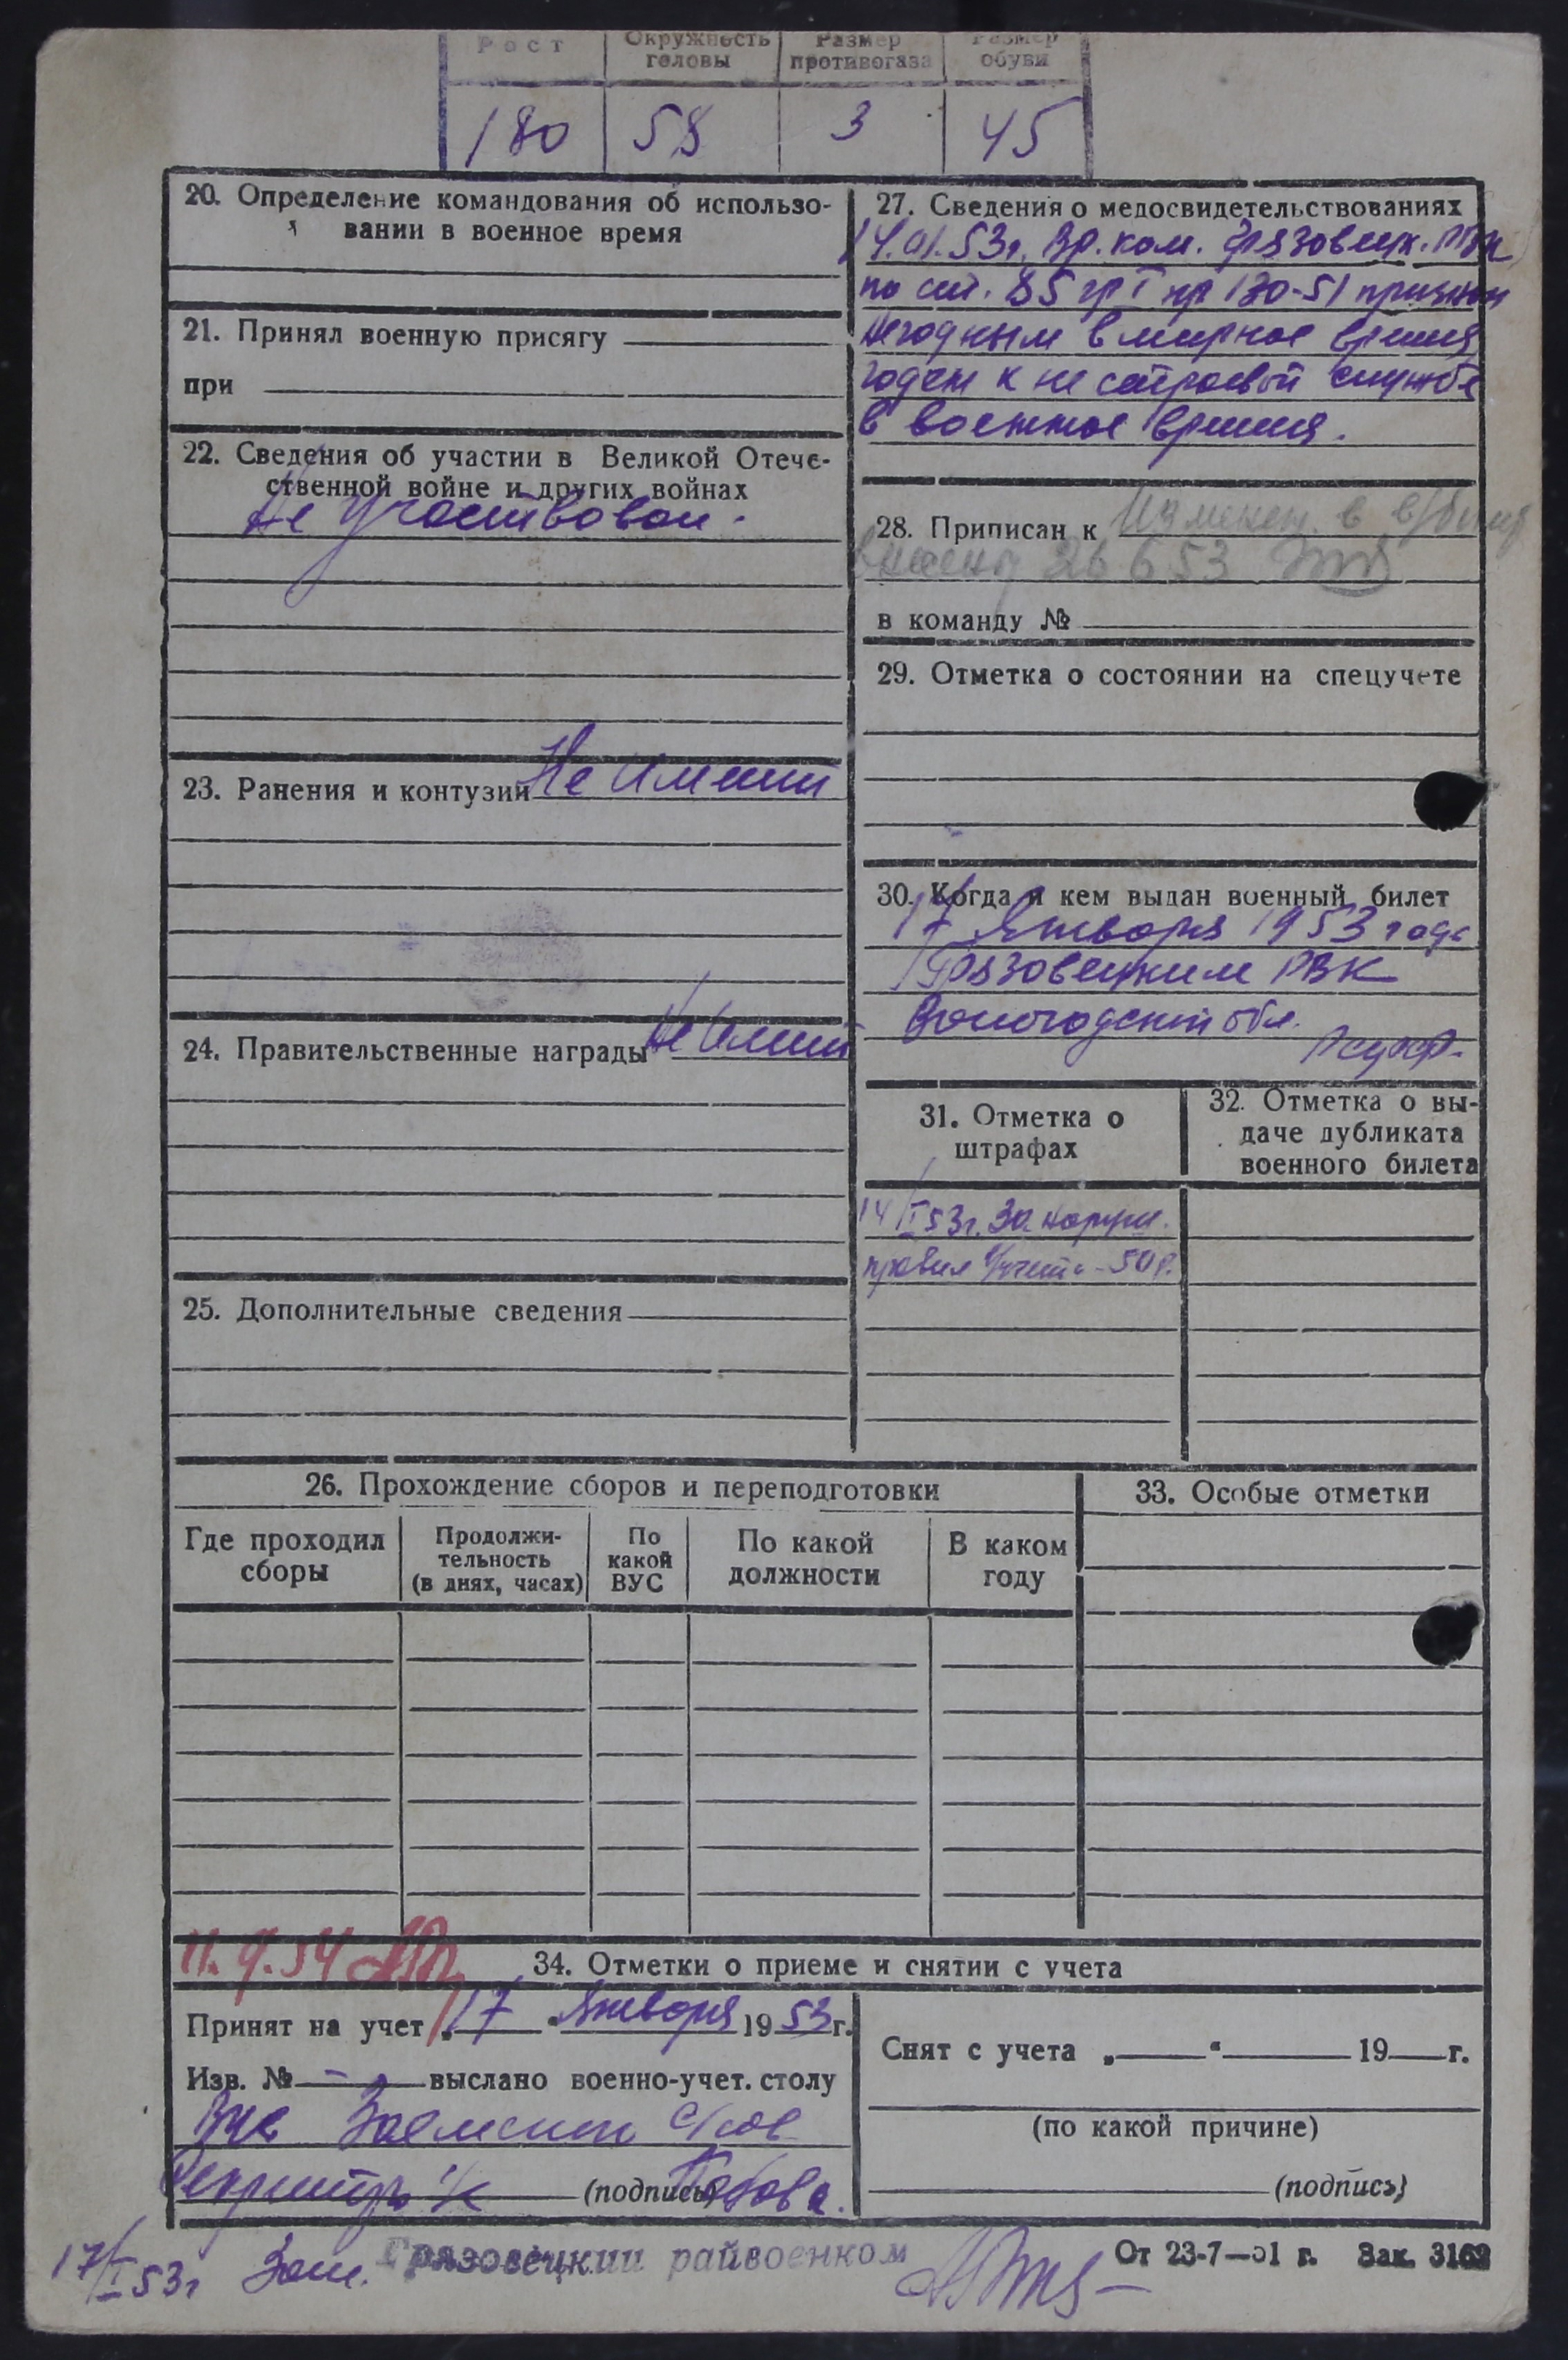 Рост Окружность головы Размер противогаза Размер обуви
180 58 3 45
20. Определение командования об использо-
вании в военное время
21. Принял военную присягу
при
22. Сведения об участии в Великой Отече-
ственной войне и других войнах
Не участвовал.
23. Ранения и контузии Не имеет
24. Правительственные награды Не имеет
25. Дополнительные сведения
27. Сведения о медосвидетельствованиях
14.01.53г. Вр. ком. Грязовецк. РВК
по ст. 85 гр I пр 130-51 признан
негодным в мирное время
годен к не строевой службе
в военное время.
28. Приписан к
26 6 53
в команду №
29. Отметка о состоянии на спецучете
30. Когда и кем выдан военный билет
17 Января 1953 года
Грязовецким РВК
Вологодской обл.
31. Отметка о
штрафах
14/I 53г. За наруш.
правил учета - 50 р.
32. Отметка о вы-
даче дубликата
военного билета
26. Прохождение сборов и переподготовки
Где проходил сборы Продолжи-тельность (в днях, часах) По какой ВУС По какой должности В каком году
33. Особые отметки
34. Отметки о приеме и снятии с учета
Принят на учет „17“ Января 1953 г.
Изв. № - выслано военно-учет. столу
с/сов
Секретарь (подпись)
Снят с учета „ “ 19 г.
(по какой причине)
(подпись)
17/I 53г Грязовецкий райвоенком
От 23-7—51 г. Зак. 3162